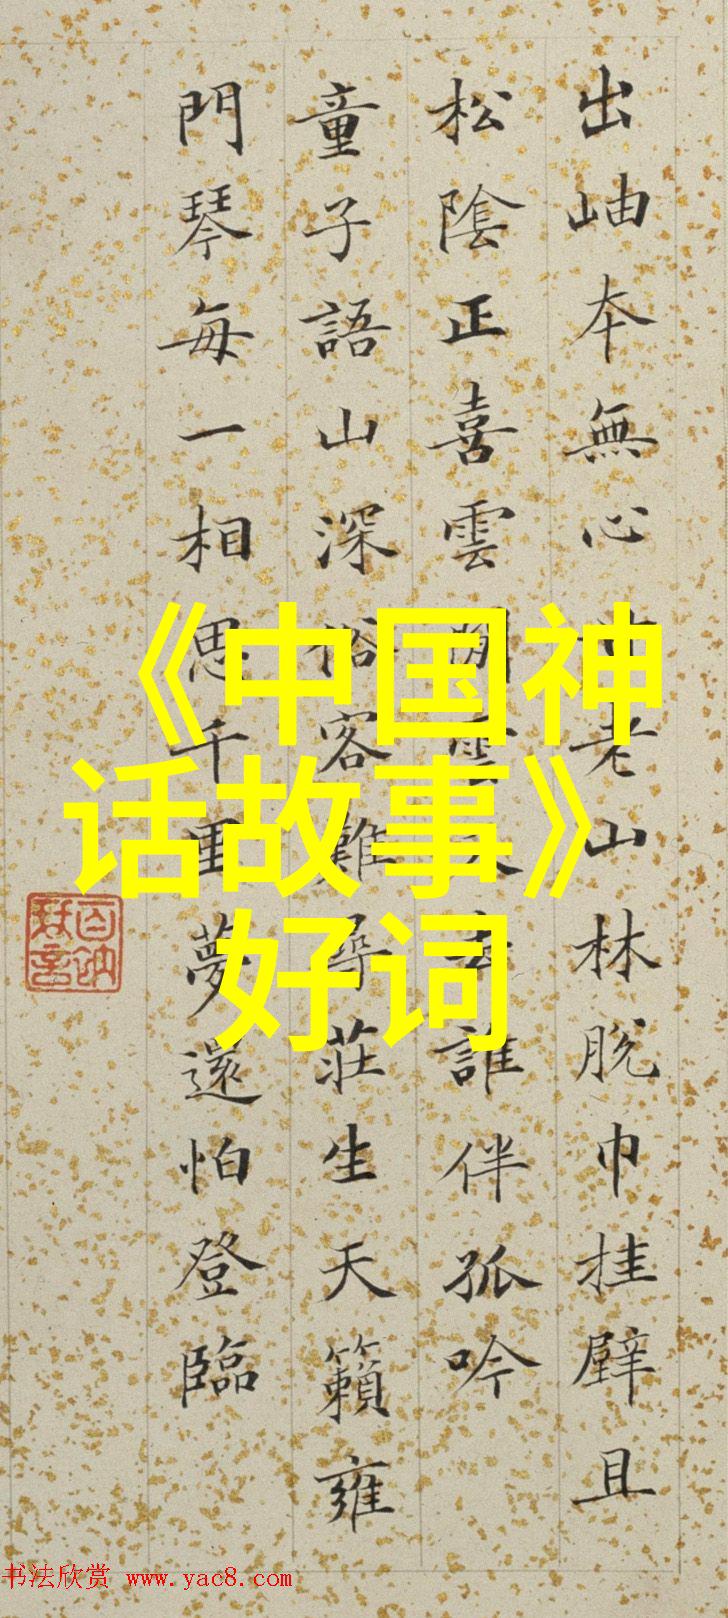 出岫本無心老山林脫巾挂壁且
松陰正喜雲雲去誰伴孤吟
童子語山深俗客難尋莊生天籟雍
門琴每一相思千里夢還怕登臨
《中国神
话故事》
好词
书法欣赏 www.yac8.com